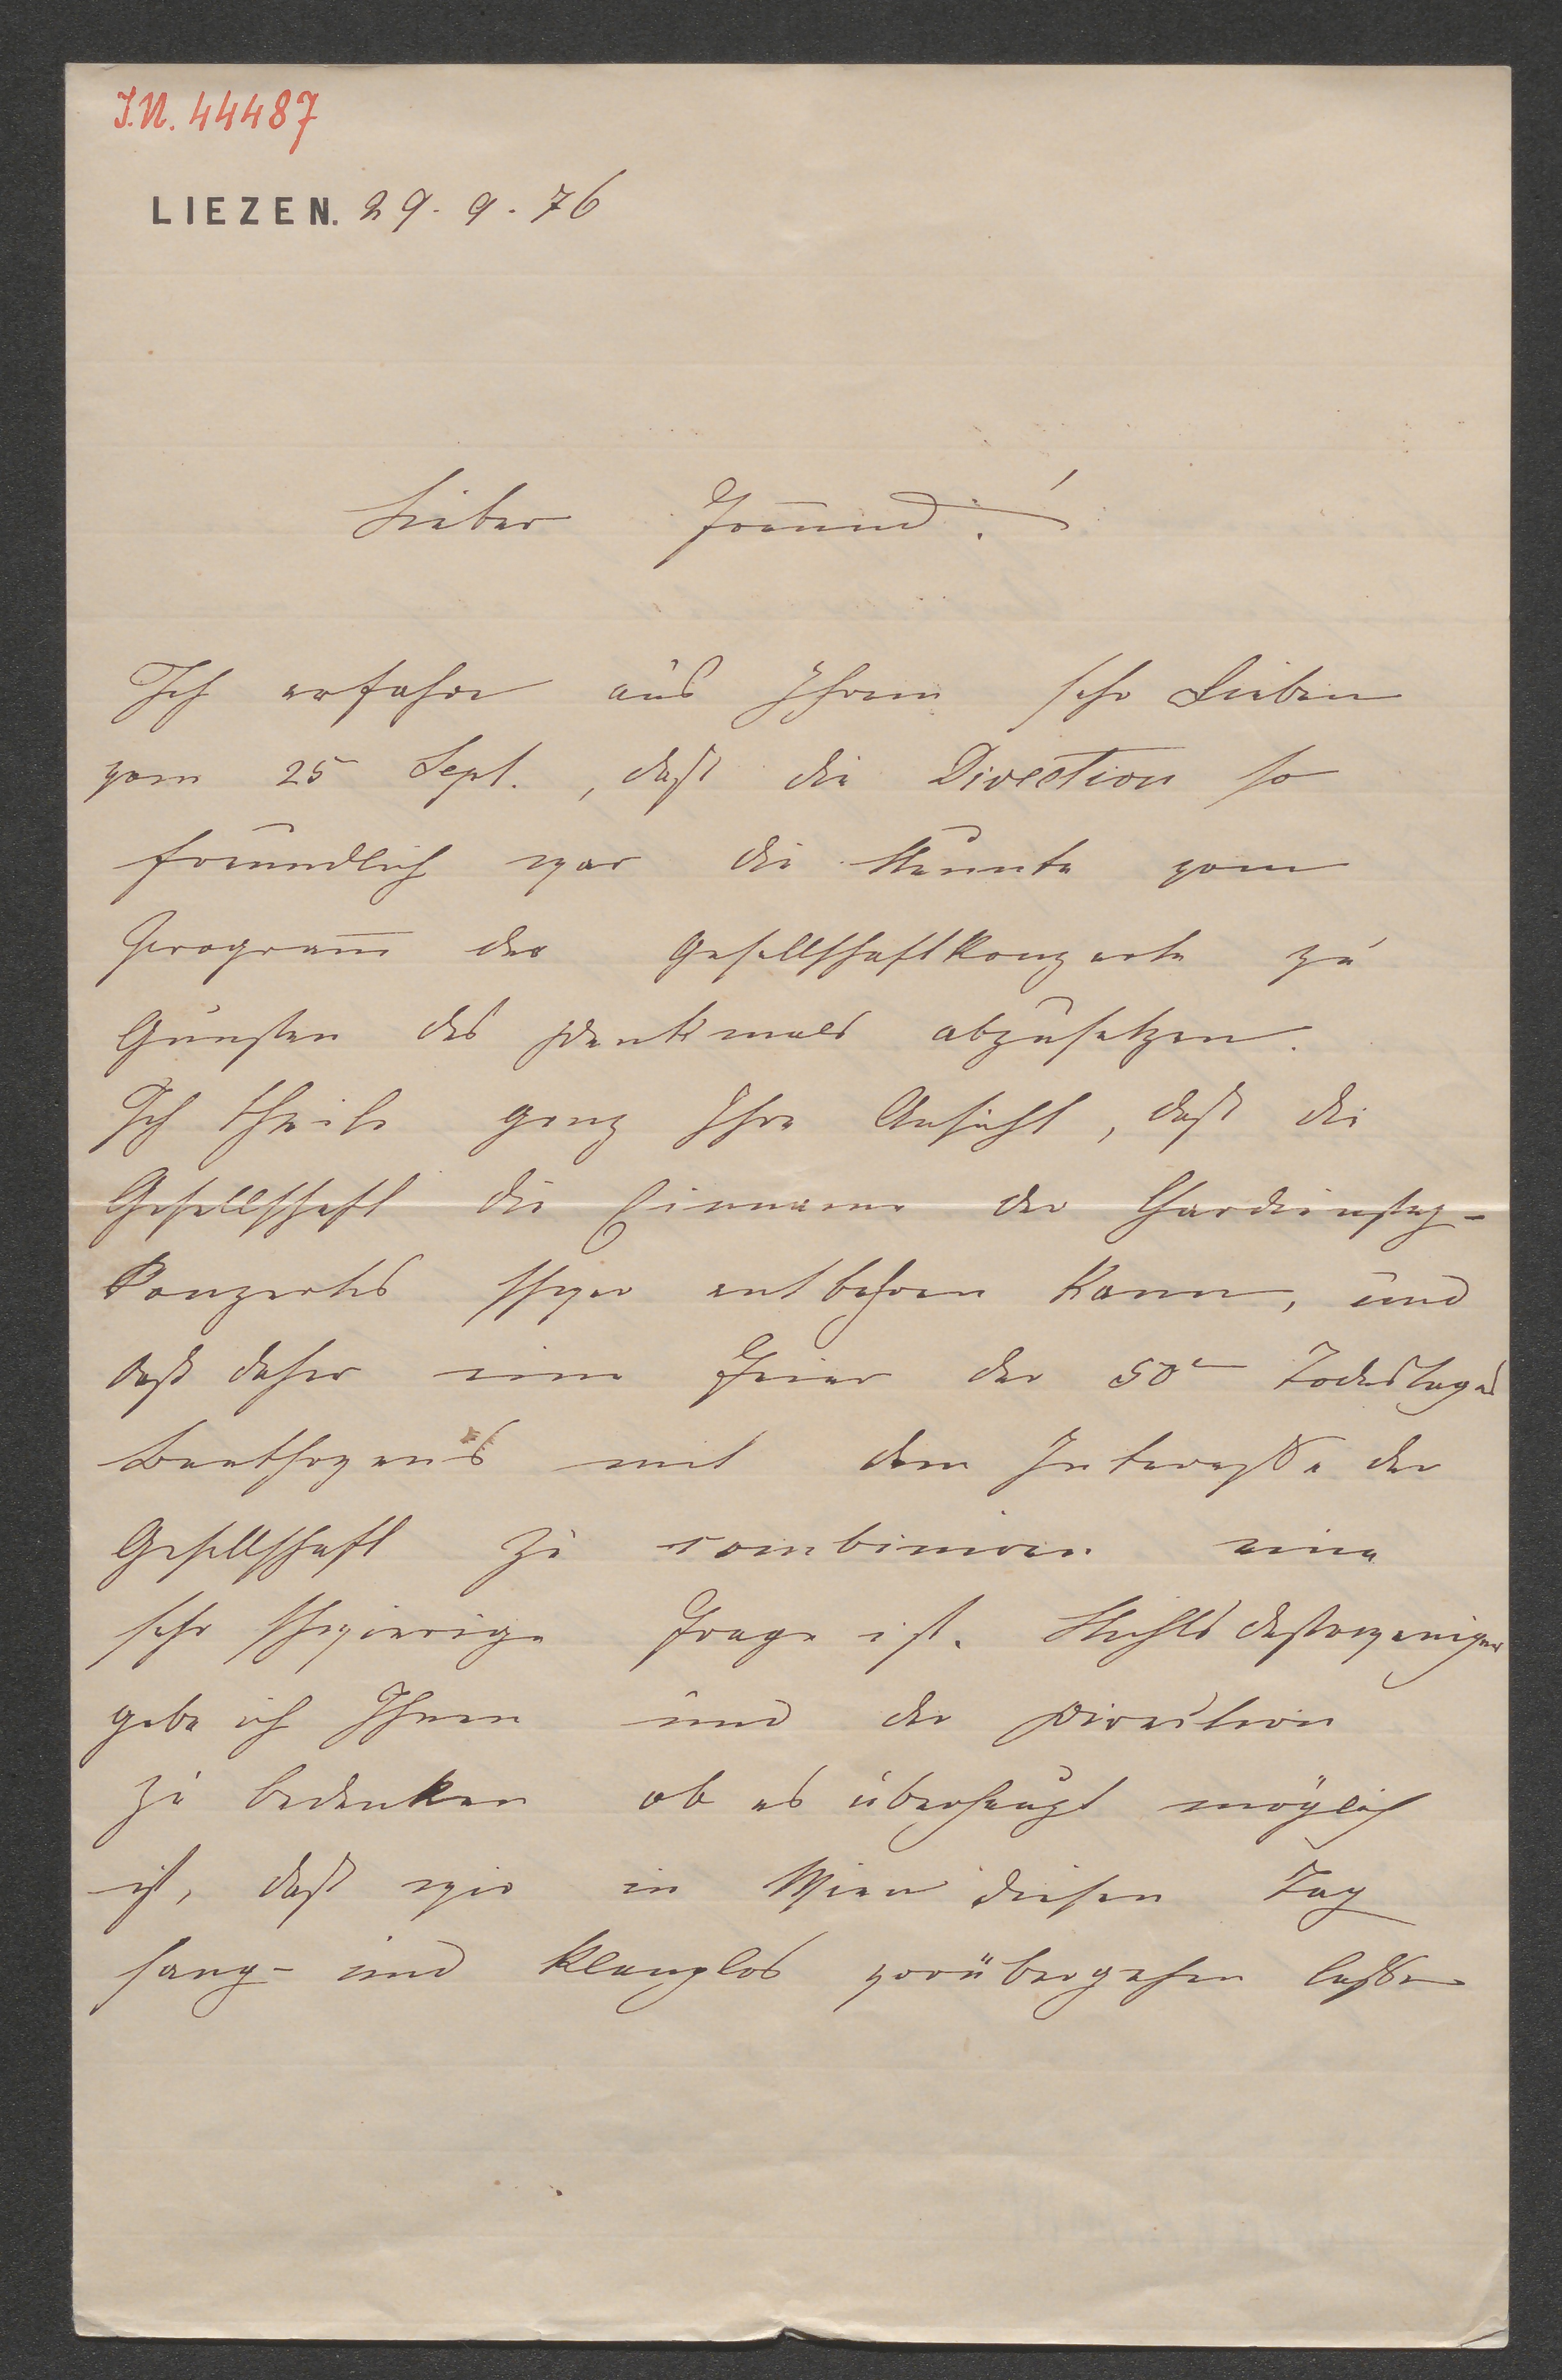 I.N. 44487
LIEZEN. 29. 9. 76
Lieber Freund!
Ich erfahre aus Ihrem sehr Lieben
vom 25 Sept., daß die Direction so
freundlich war die Neunte vom
Programm̄ der Gesellschaftkonzerte zu
Gunsten des Denkmals abzusetzen.
Ich theile ganz Ihre Ansicht, daß die
Gesellschaft die Einname des Chardienstag-
Konzertes schwer entbehren kann, und
daß daher eine Feier des 50n Todestages
Beethovens mit dem Interesse der
Gesellschaft zu combiniren eine
sehr schwierige Frage ist. Nichts destoweniger
gebe ich Ihnen und der Direction
zu bedenken ob es überhaupt möglich
ist, daß wir in Wien diesen Tag
sang- und klanglos vorübergehen lassen